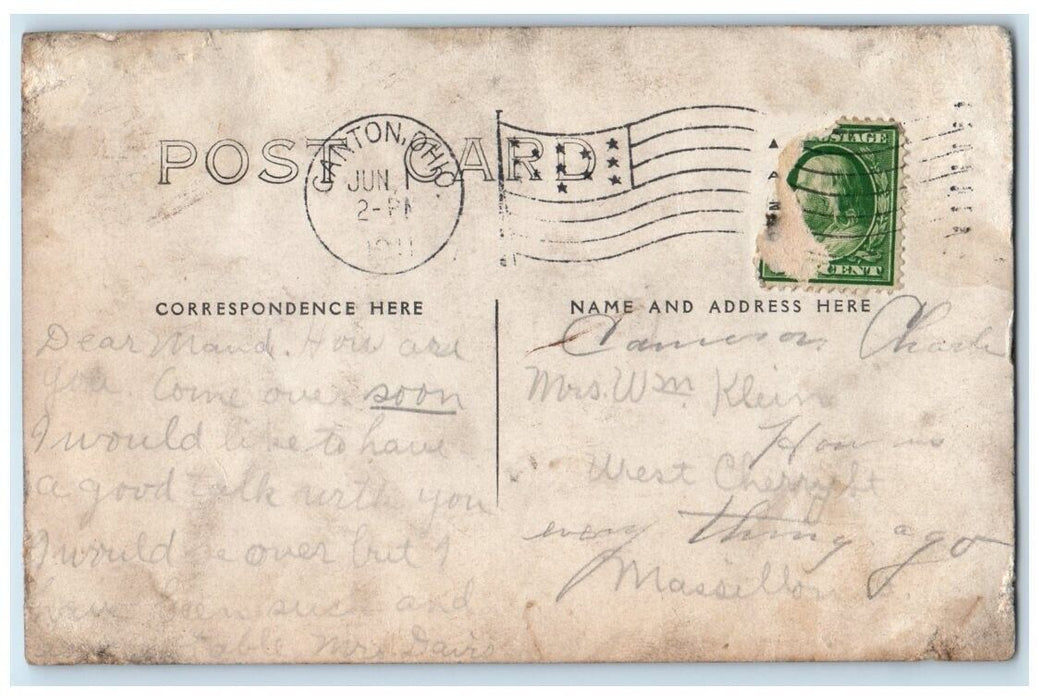 POST CARD
CANTON, OHIO.
JUN. 1
2-PM
1911
POSTAGE
CENT
CORRESPONDENCE HERE
NAME AND ADDRESS HERE
Dear Maud. How are
you. Come over soon
I would like to have
a good talk with you
I would be over but I
have been sick and
Mrs. Davis
Cameron Charle
Mrs. Wm. Klein
How is
West Cherry St
every thing ago
Massillon